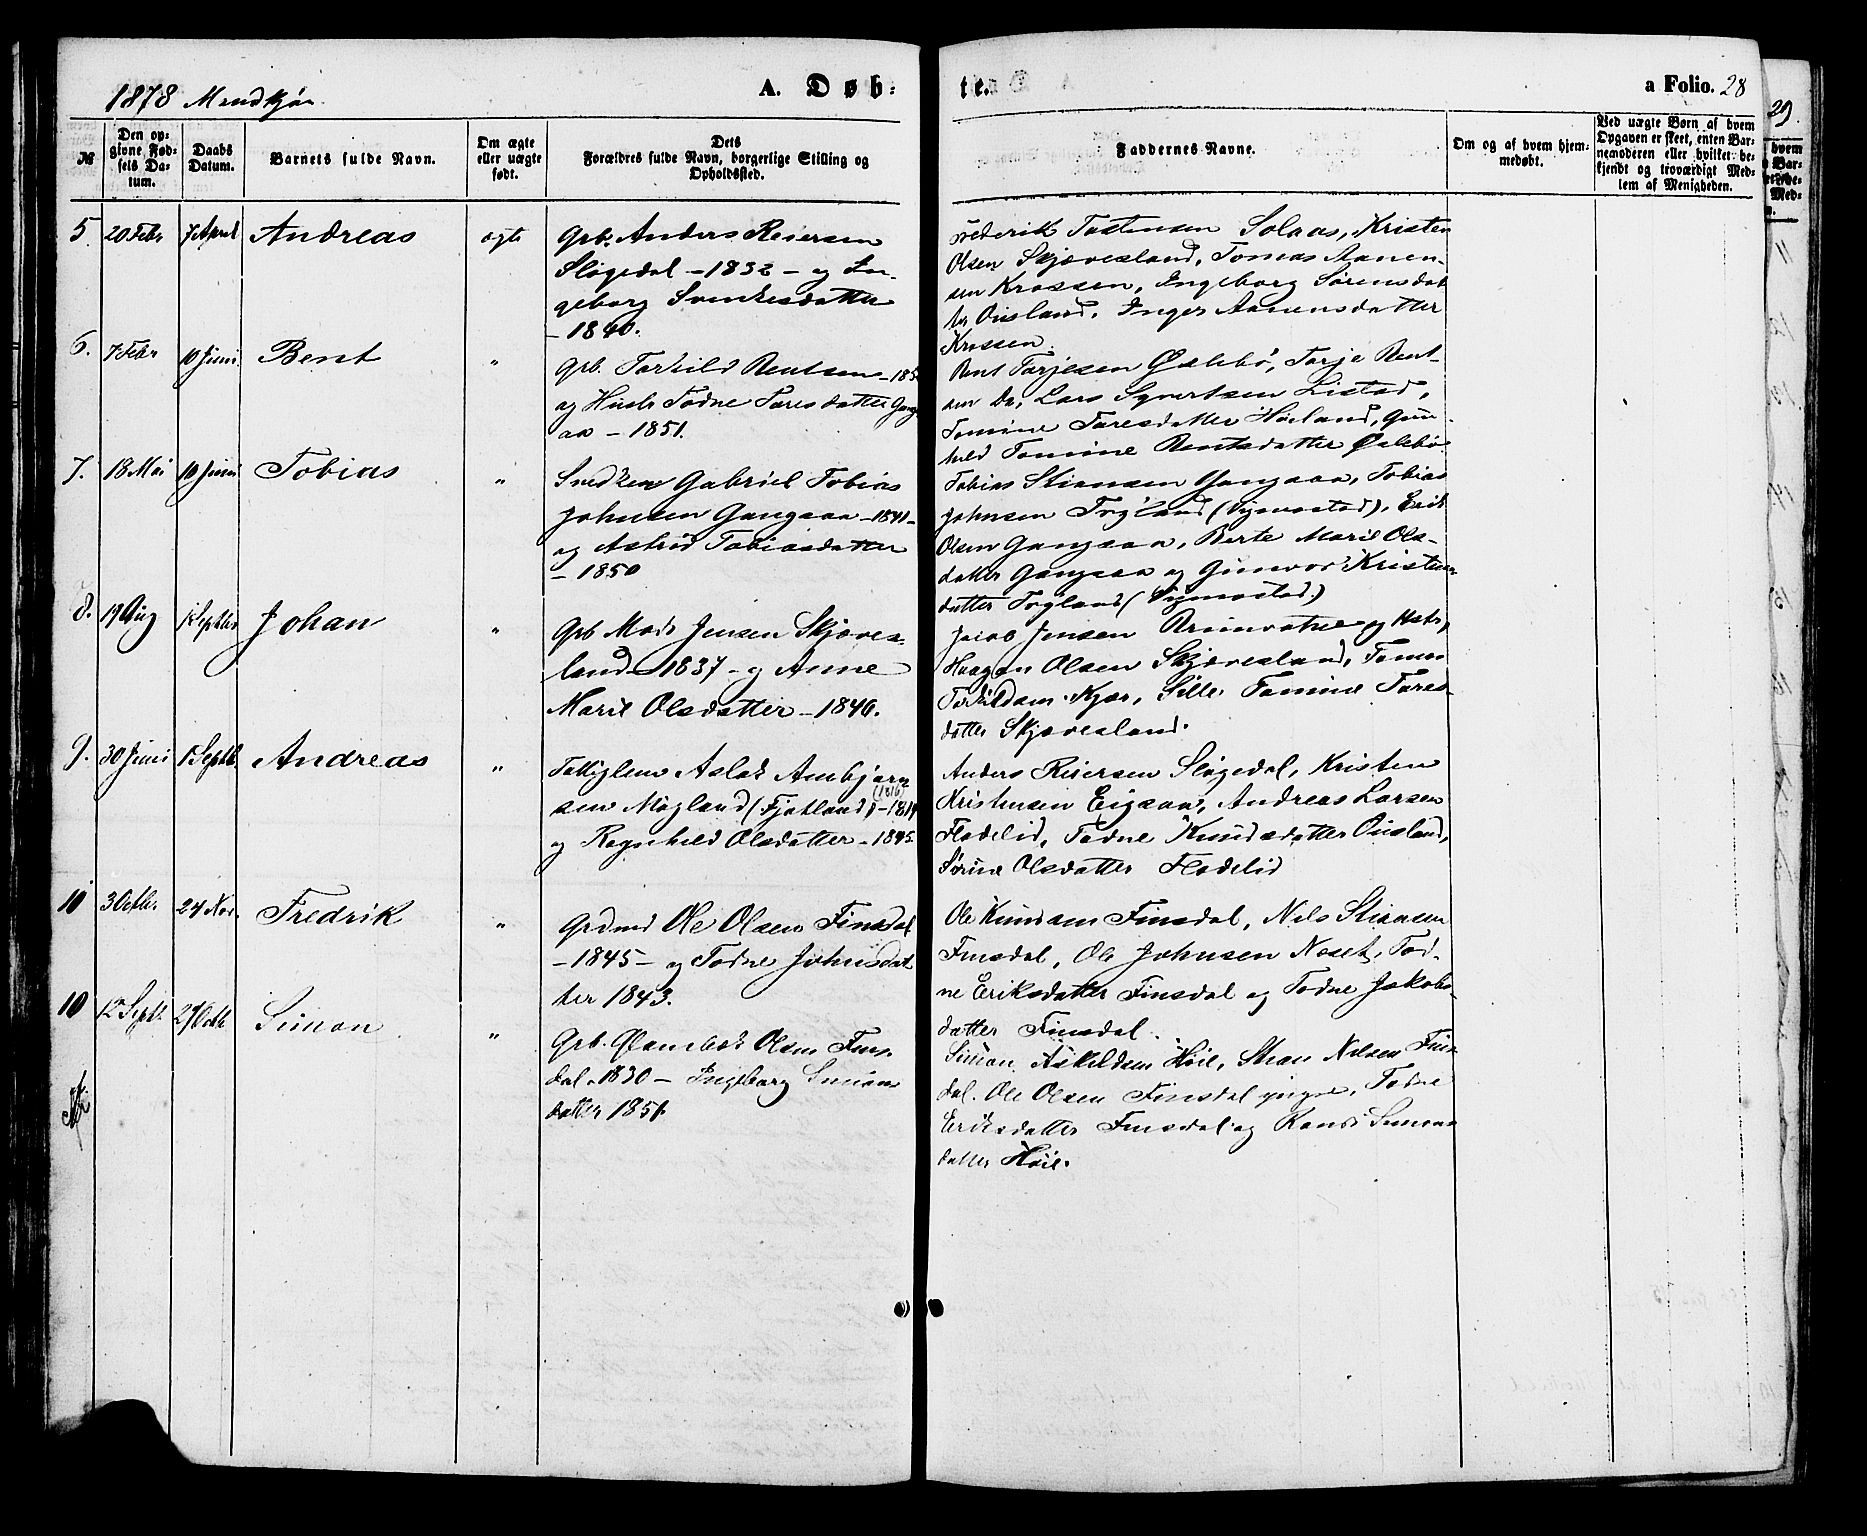 1878 Mandkjøn.
A. Døb-
te.
a Folio. 28
29.
№
Den op-
givne Fød-
sels Da-
tum.
Daabs
Datum.
Barnets fulde Navn.
Om ægte
eller uægte
født.
Dets
Forældres fulde Navn, borgerlige Stilling og
Opholdssted.
Faddernes Navne.
Om og af hvem hjem-
medøbt.
Ved uægte Børn af hvem
Opgaven er skeet, enten Bar-
nemoderen eller hvilket be-
kjendt og troværdigt Med-
lem af Menigheden.
5. 20 Febr 7 April Andreas ægte
Grb. Anders Reiersen
Sløgedal - 1832 - og In-
geborg Svenkesdatter
- 1840.
Frederik Tostensen Solaas, Kristen
Olsen Skjævesland, Tomas Aanen-
sen Krossen, Ingeborg Sørensdat
ter Ousland, Inger Aanensdatter
Krossen.
6. 7 Febr 10 Juni Bent "
Grb. Torkild Bentsen - 185
og Hustr Todne Taresdatter Gang
aa - 1851.
Bent Torjesen Øslebø, Torje Bent-
sen Do, Lars Syvertsen Listad,
Tomine Taresdatter Høiland, Gun-
hild Tomine Bentsdatter Øslebø
7. 18 Mai 10 Juni Tobias "
Snedker Gabriel Tobias
Johnsen Gangsaa - 1841 -
og Astrid Tobiasdatter
- 1850
Tobias Stiansen Gangsaa, Tobias
Johnsen Trygland (Vigmostad), Erik
Olsen Gangsaa, Berte Marie Ols-
datter Gangsaa og Gunvor Kristens-
datter Trygland (Vigmostad)
8. 19 Aug 1 Septbr Johan "
Grb Mads Jensen Skjæves-
land - 1837 - og Anne
Marie Olsdatter - 1840.
Jacob Jensen Brunvatne og Hstr,
Haagen Olsen Skjævesland, Tomas
Torkildsen Kjær, Sille Tomine Tores-
datter Skjævesland.
9. 30 Juni 15 Septb. Andreas "
Fattiglem Aslak Ambjørn
sen Møgland (Fjotland) - 1819
(1816)
og Ragnhild Olsdatter - 1845.
Anders Reiersen Sløgedal, Kristen
Kristensen Eigsaa, Andreas Larsen
Flodelid, Todne Knudsdatter Ousland,
Sørine Olsdatter Flodelid
10 3 Octbr 24 Nov. Fredrik "
Grdmd Ole Olsen Finsdal
- 1845 - og Todne Johnsdat
ter 1843.
Ole Knudsen Finsdal, Nils Stiansen
Finsdal, Ole Johnsen Noset, Tod-
ne Eriksdatter Finsdal og Todne Jakobs-
datter Finsdal.
10 12 Septr 29 Octb Simon "
Grb. Olsen Fins-
dal - 1830 - Ingeborg Simons
datter 1851.
Simon Askildsen Høie, Stian Nilsen Fins
dal. Ole Olsen Finsdal yngre, Todne
Eriksdatter Finsdal og Randi Simons
datter Høie.